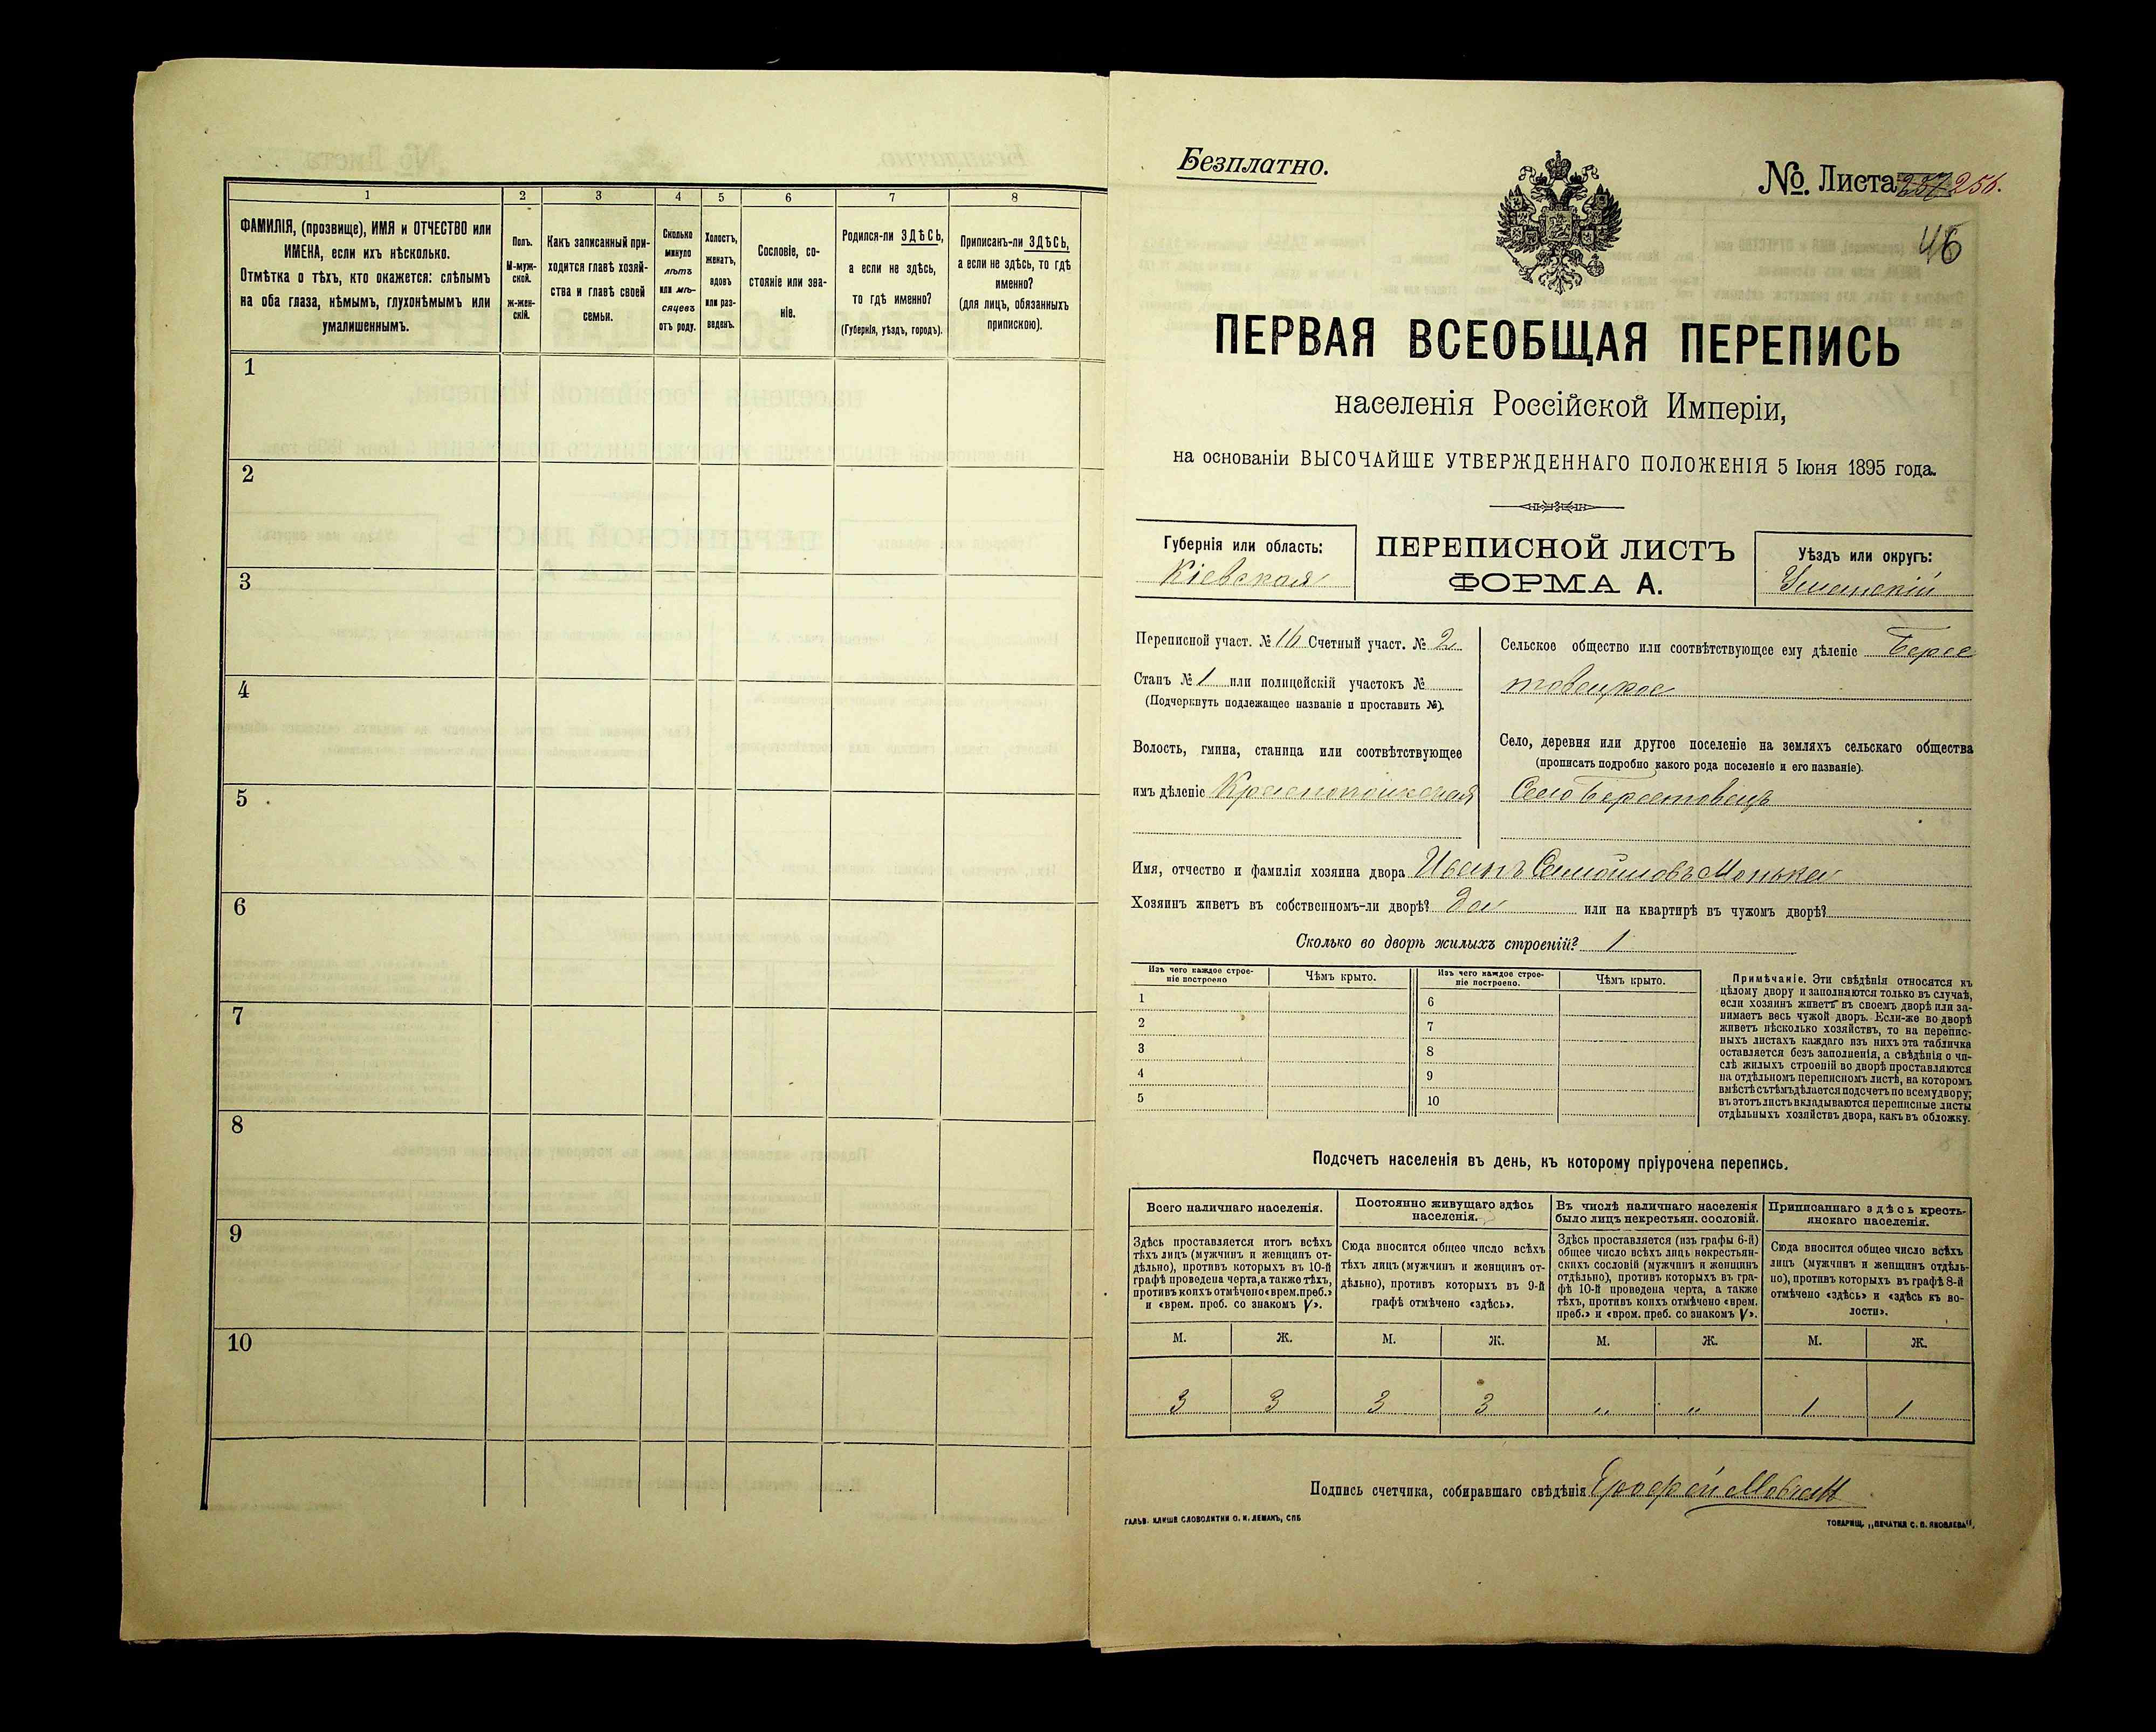 1 2 3 4 5 6 7 8
ФАМИЛІЯ, (прозвище), ИМЯ и ОТЧЕСТВО или
ИМЕНА, если ихъ нѣсколько.
Отмѣтка о тѣхъ, кто окажется: слѣпымъ
на оба глаза, нѣмымъ, глухонѣмымъ или
умалишеннымъ.
Полъ.
М-муж-
ской.
Ж-жен-
скій.
Какъ записанный при-
ходится главѣ хозяй-
ства и главѣ своей
семьи.
Сколько
минуло
лѣтъ
или мѣ-
сяцевъ
отъ роду.
Холостъ,
женатъ,
вдовъ
или раз-
веденъ.
Сословіе, со-
стояніе или зва-
ніе.
Родился-ли ЗДѢСЬ,
а если не здѣсь,
то гдѣ именно?
(Губернія, уѣздъ, городъ).
Приписанъ-ли ЗДѢСЬ,
а если не здѣсь, то гдѣ
именно?
(для лицъ, обязанныхъ
припискою).
1
2
3
4
5
6
7
8
9
10
Безплатно.
№. Листа 256.
46
ПЕРВАЯ ВСЕОБЩАЯ ПЕРЕПИСЬ
населенія Россійской Имперіи,
на основаніи ВЫСОЧАЙШЕ УТВЕРЖДЕННАГО ПОЛОЖЕНІЯ 5 Іюня 1895 года.
Губернія или область:
Кіевская
ПЕРЕПИСНОЙ ЛИСТЪ
ФОРМА А.
Уѣздъ или округъ:
Уманскій
Переписной участ. № 16 Счетный участ. № 2
Станъ № 1 или полицейскій участокъ №
(Подчеркнуть подлежащее названіе и проставить №).
Волость, гмина, станица или соотвѣтствующее
имъ дѣленіе Краснопольская
Сельское общество или соотвѣтствующее ему дѣленіе Берес
товецкое
Село, деревня или другое поселеніе на земляхъ сельскаго общества
(прописать подробно какого рода поселеніе и его названіе).
Село Берестовецъ
Имя, отчество и фамилія хозяина двора Иванъ Самойловъ Монька
Хозяинъ живетъ въ собственномъ-ли дворѣ? да или на квартирѣ въ чужомъ дворѣ?
Сколько во дворѣ жилыхъ строеній? 1
Изъ чего каждое строе-
ніе построено
Чѣмъ крыто.
Изъ чего каждое строе-
ніе построено.
Чѣмъ крыто.
1 6
2 7
3 8
4 9
5 10
Примѣчаніе. Эти свѣдѣнія относятся къ
цѣлому двору и заполняются только въ случаѣ,
если хозяинъ живетъ въ своемъ дворѣ или за-
нимаетъ весь чужой дворъ. Если-же во дворѣ
живетъ нѣсколько хозяйствъ, то на перепис-
ныхъ листахъ каждаго изъ нихъ эта табличка
оставляется безъ заполненія, а свѣдѣнія о чи-
слѣ жилыхъ строеній во дворѣ проставляются
на отдѣльномъ переписномъ листѣ, на которомъ
вмѣстѣ съ тѣмъ дѣлается подсчетъ по всему двору;
въ этотъ листъ вкладываются переписные листы
отдѣльныхъ хозяйствъ двора, какъ въ обложку.
Подсчетъ населенія въ день, къ которому пріурочена перепись.
Всего наличнаго населенія.
Здѣсь проставляется итогъ всѣхъ
тѣхъ лицъ (мужчинъ и женщинъ от-
дѣльно), противъ которыхъ въ 10-й
графѣ проведена черта, а также тѣхъ,
противъ коихъ отмѣчено «врем. преб.»
и «врем. преб. со знакомъ V».
Постоянно живущаго здѣсь
населенія.
Сюда вносится общее число всѣхъ
тѣхъ лицъ (мужчинъ и женщинъ от-
дѣльно), противъ которыхъ въ 9-й
графѣ отмѣчено «здѣсь».
Въ числѣ наличнаго населенія
было лицъ некрестьян. сословій.
Здѣсь проставляется (изъ графы 6-й)
общее число всѣхъ лицъ некрестьян-
скихъ сословій (мужчинъ и женщинъ
отдѣльно), противъ которыхъ въ гра-
фѣ 10-й проведена черта, а также
тѣхъ, противъ коихъ отмѣчено «врем.
преб.» и «врем. преб. со знакомъ V».
Приписаннаго здѣсь кресть-
янскаго населенія.
Сюда вносится общее число всѣхъ
лицъ (мужчинъ и женщинъ отдѣль-
но), противъ которыхъ въ графѣ 8-й
отмѣчено «здѣсь» и «здѣсь къ во-
лости».
М. Ж. М. Ж. М. Ж. М. Ж.
3 3 3 3 „ „ 1 1
Подпись счетчика, собиравшаго свѣдѣнія Ерофей
ГАЛЬВ. КЛИШЕ СЛОВОЛИТНИ О. И. ЛЕМАНЪ, СПБ
ТОВАРИЩ. „ПЕЧАТНЯ С. П. ЯКОВЛЕВА".